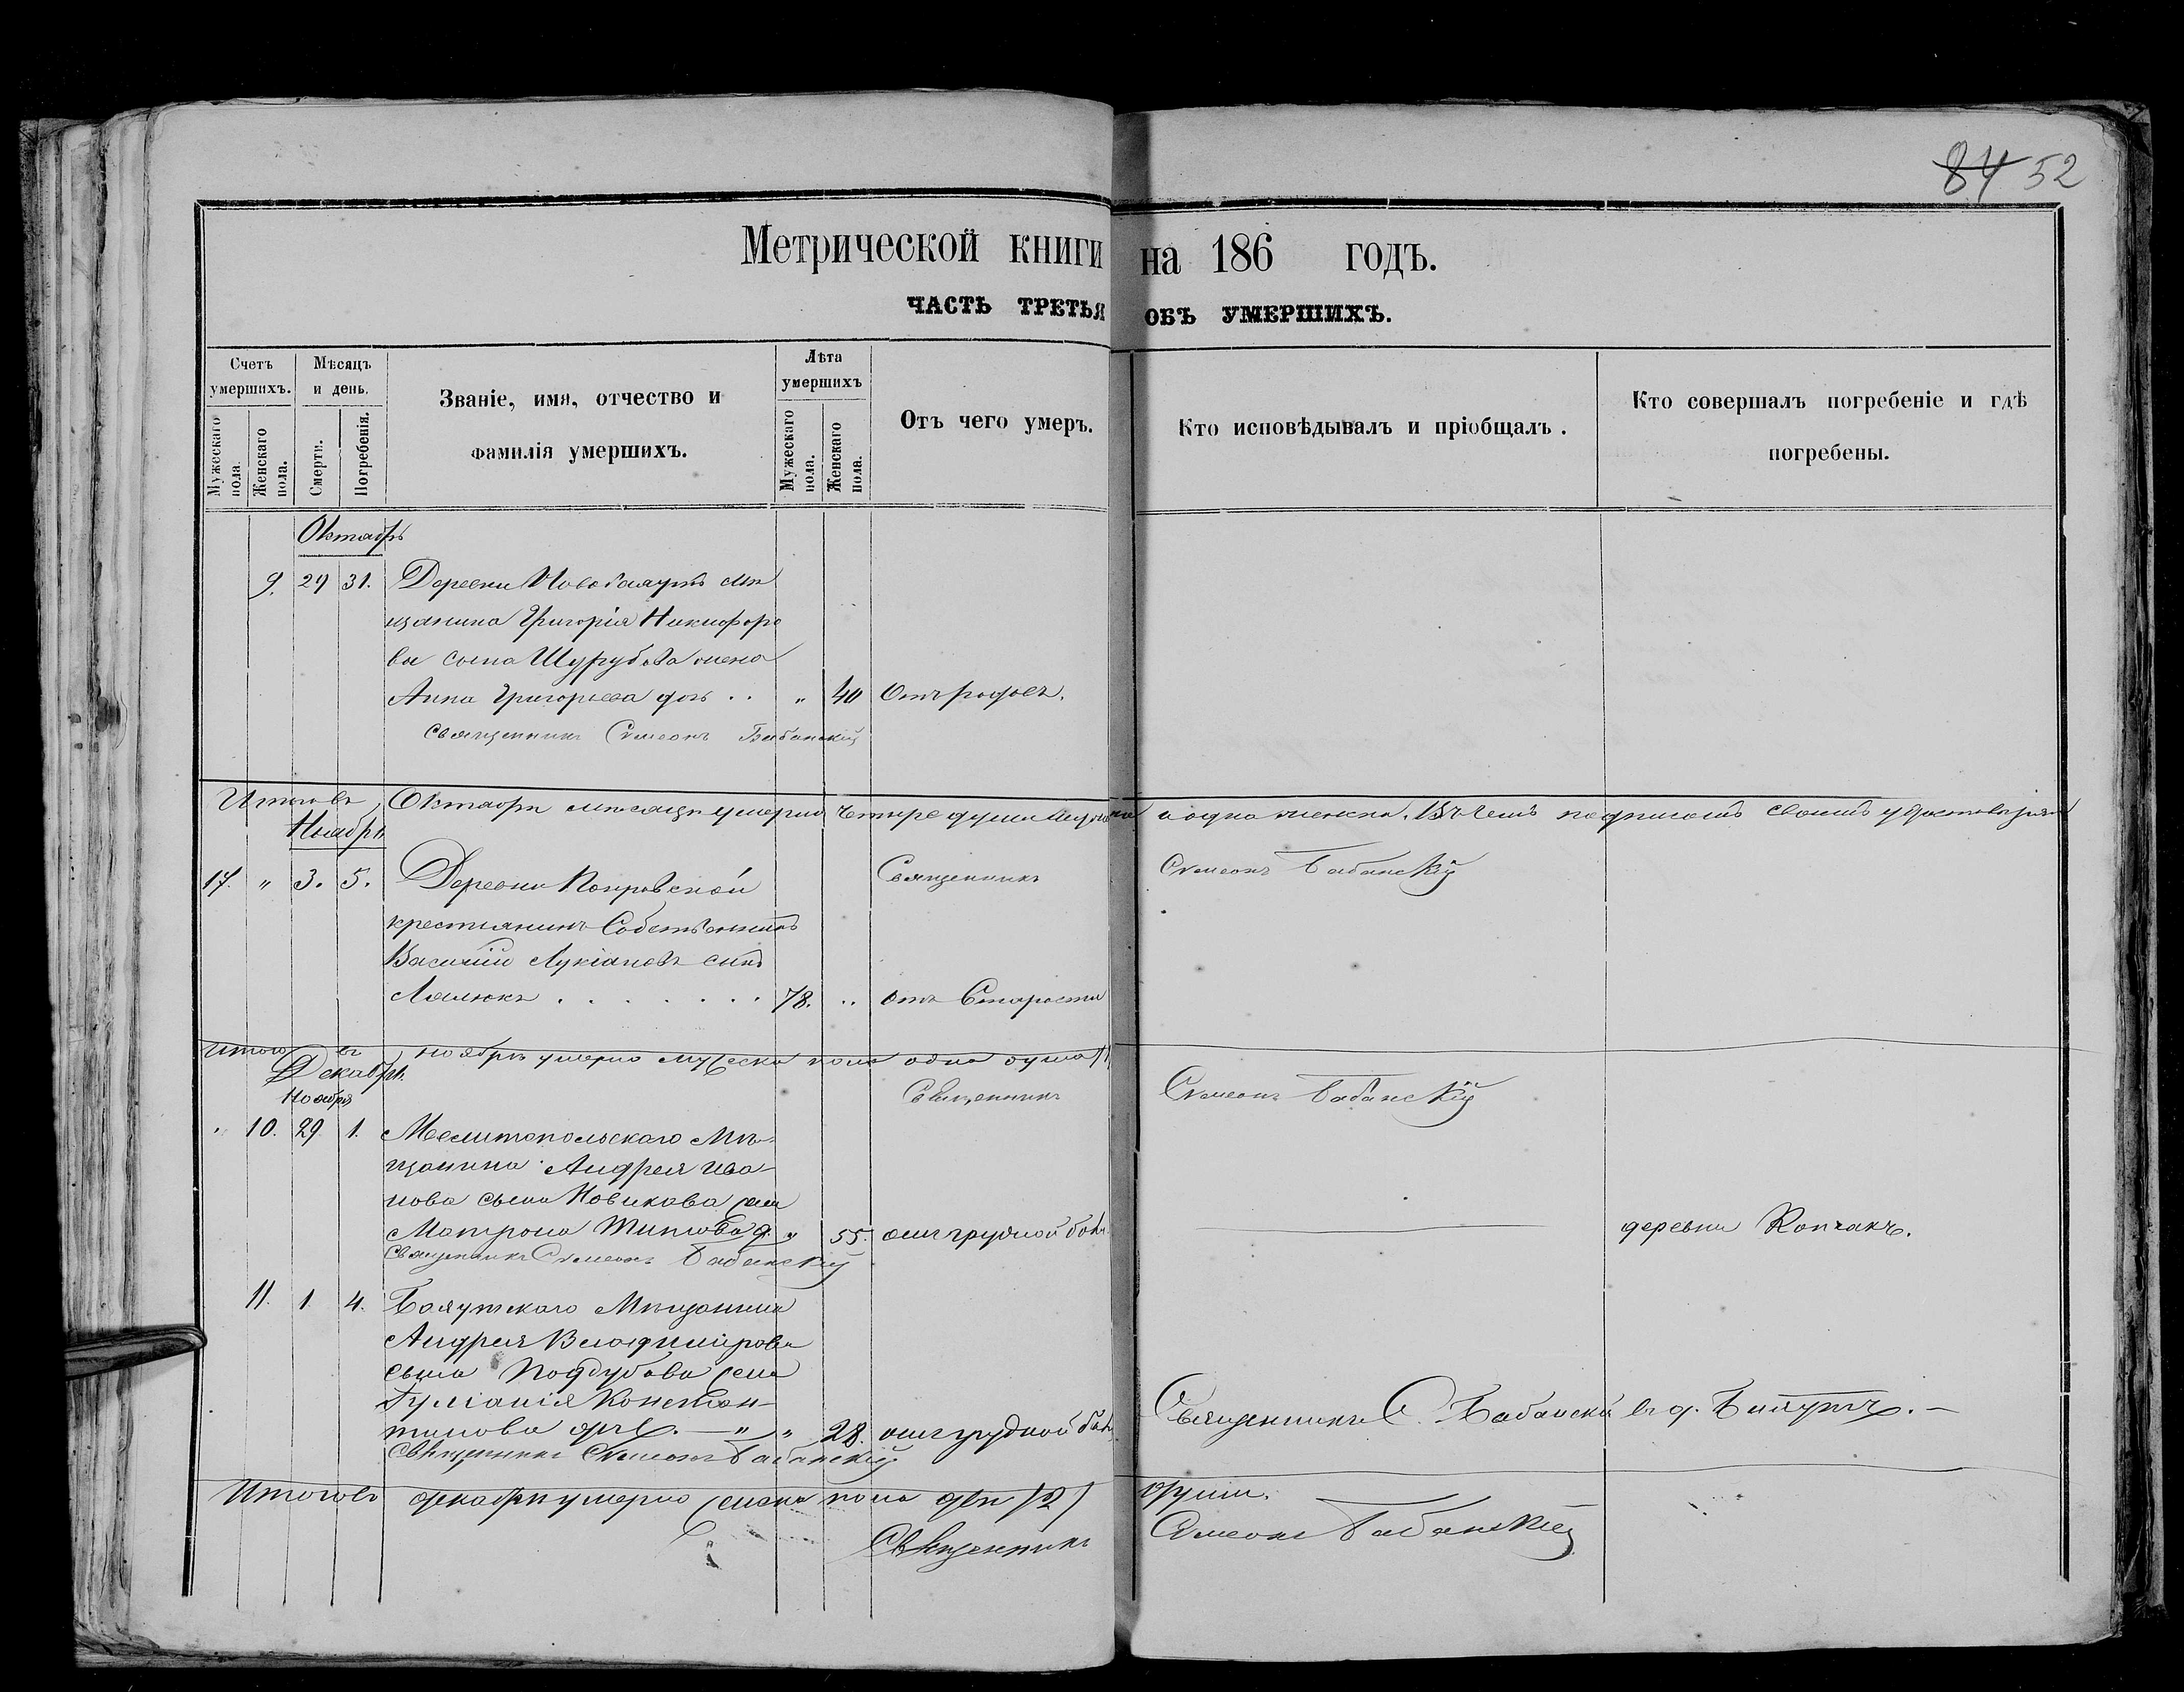 84 52
Метрической книги на 186 годъ.
ЧАСТЬ ТРЕТЬЯ ОБЪ УМЕРШИХЪ.
Счетъ умершихъ.
Мужескаго пола.
Женскаго пола.
Мѣсяцъ и день.
Смерти.
Погребенія.
Званіе, имя, отчество и
фамилія умершихъ.
Лѣта умершихъ
Мужескаго пола.
Женскаго пола.
Отъ чего умеръ.
Кто исповѣдывалъ и пріобщалъ.
Кто совершалъ погребеніе и гдѣ
погребены.
Октябрь
9. 29 31. Деревни Новобаяутъ мѣ
щанина Григорія Никифоро
ва сына жена
Анна Григорьева дочь . . " 40 Отъ родовъ.
Священникъ Симеонъ Бабанскій
Итого въ Октябрѣ мѣсяцѣ умерло четыре души мужеска и одна женска. Въ чемъ подписомъ своимъ удостовѣряю
Ноябрь
Священникъ Симеонъ Бабанскій
17. " 3. 5. Деревни Покровской
крестьянинъ Собственникъ
Василій Лукіановъ сынъ
. . . . . . . 78. .. отъ Старости
Итого въ ноябрѣ умерло мужеска пола одна душа /1
Декабрь.
Ноября
Священникъ Симеонъ Бабанскій
" 10. 29. 1. Мелитопольскаго Мѣ-
щанина Андрея Ива-
нова сына Новикова жена
Матрона Титова д. " 55. отъ грудной бол. деревни Копчакъ.
Священникъ Симеонъ Бабанскій
11. 1. 4. Баяутскаго Мѣщанина
Андрея Владимірова
сына Поддубова жена
Іуліанія Констан-
тинова дочь. — " " 28. отъ грудной бол. Священникъ С. Бабанскій въ д. Баяутъ. —
Священникъ Симеонъ Бабанскій
Итого въ декабрѣ умерло женска пола двѣ /2/ души.
Священникъ Симеонъ Бабанскій